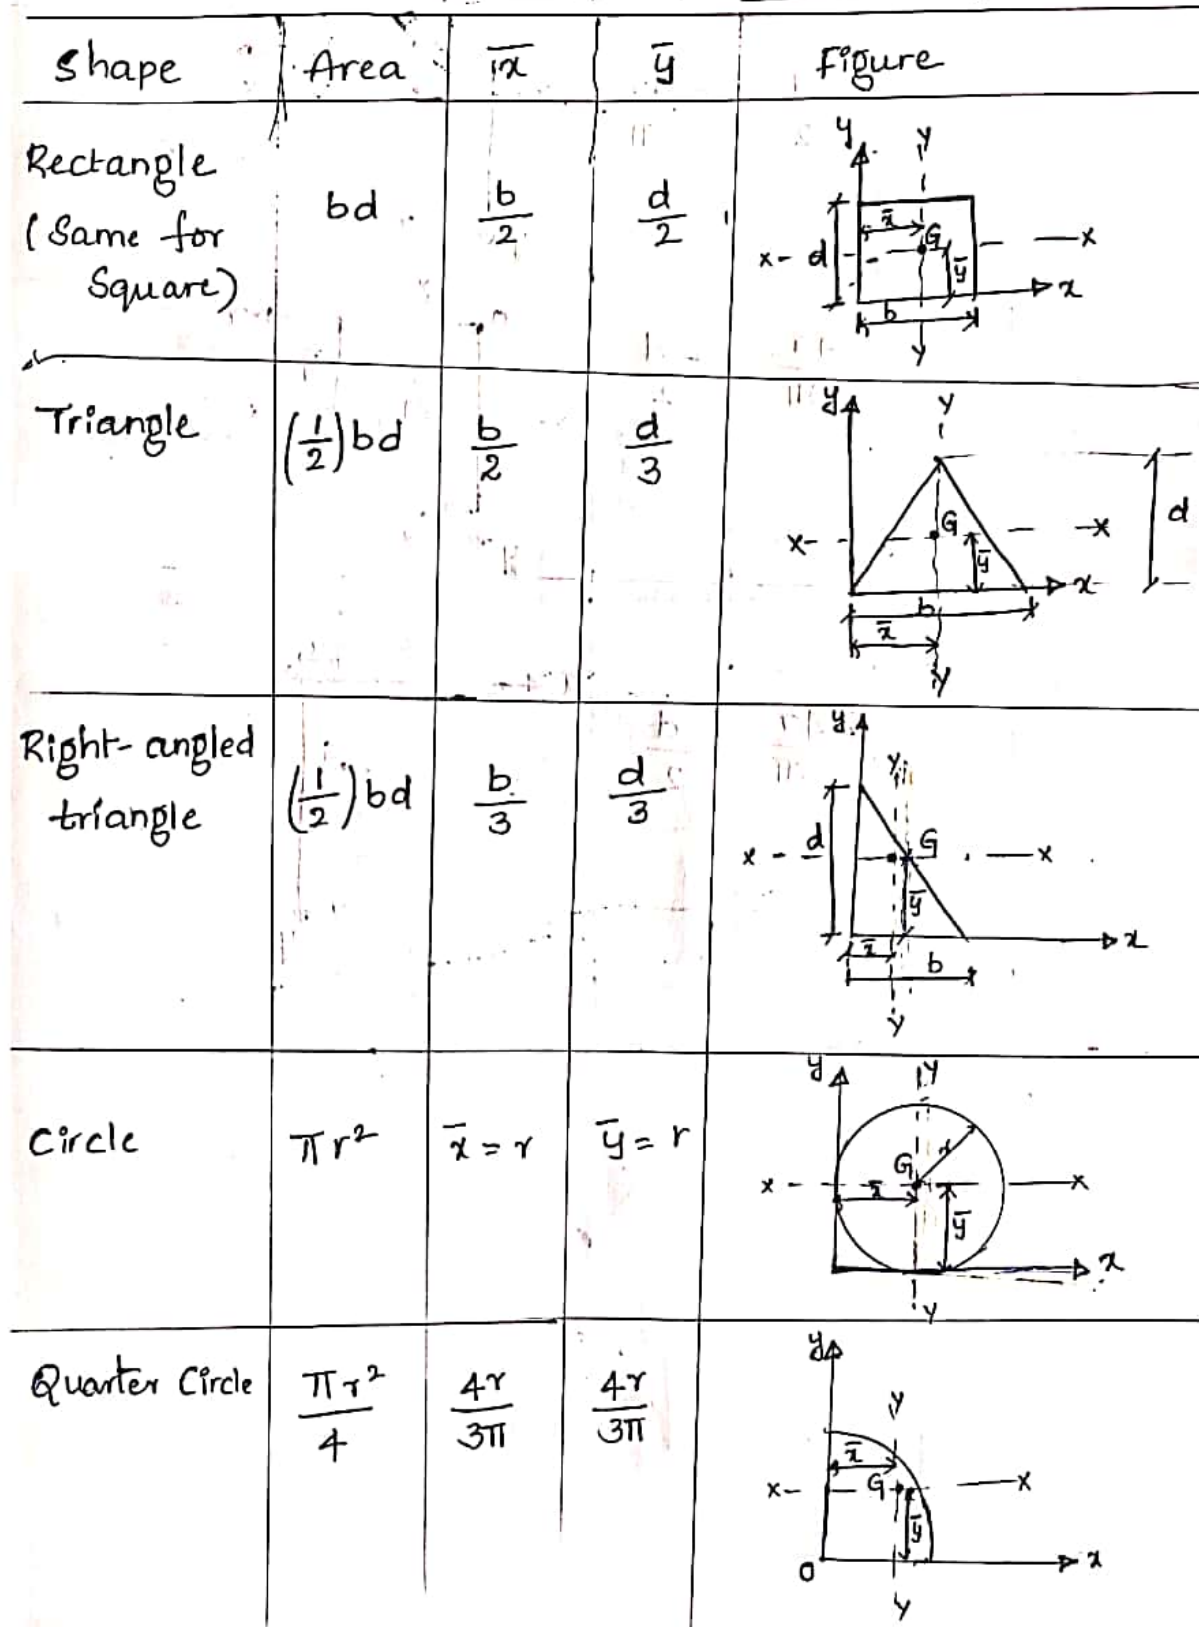 Shape Area x̄ ȳ Figure
Rectangle
(Same for
Square)
bd b/2 d/2
y y
x̄
x - d G x
ȳ
x
b
y
Triangle (1/2)bd b/2 d/3
y y
d
G
x- -x
ȳ
x
b
x̄
y
Right-angled
triangle
(1/2)bd b/3 d/3
y
y
d
x - G - x
ȳ
x
x̄
b
y
Circle πr² x̄ = r ȳ = r
y y
r
G
x - x
x̄
ȳ
x
y
Quarter Circle πr²/4 4r/3π 4r/3π
y
y
x̄
x- G - x
ȳ
O x
y